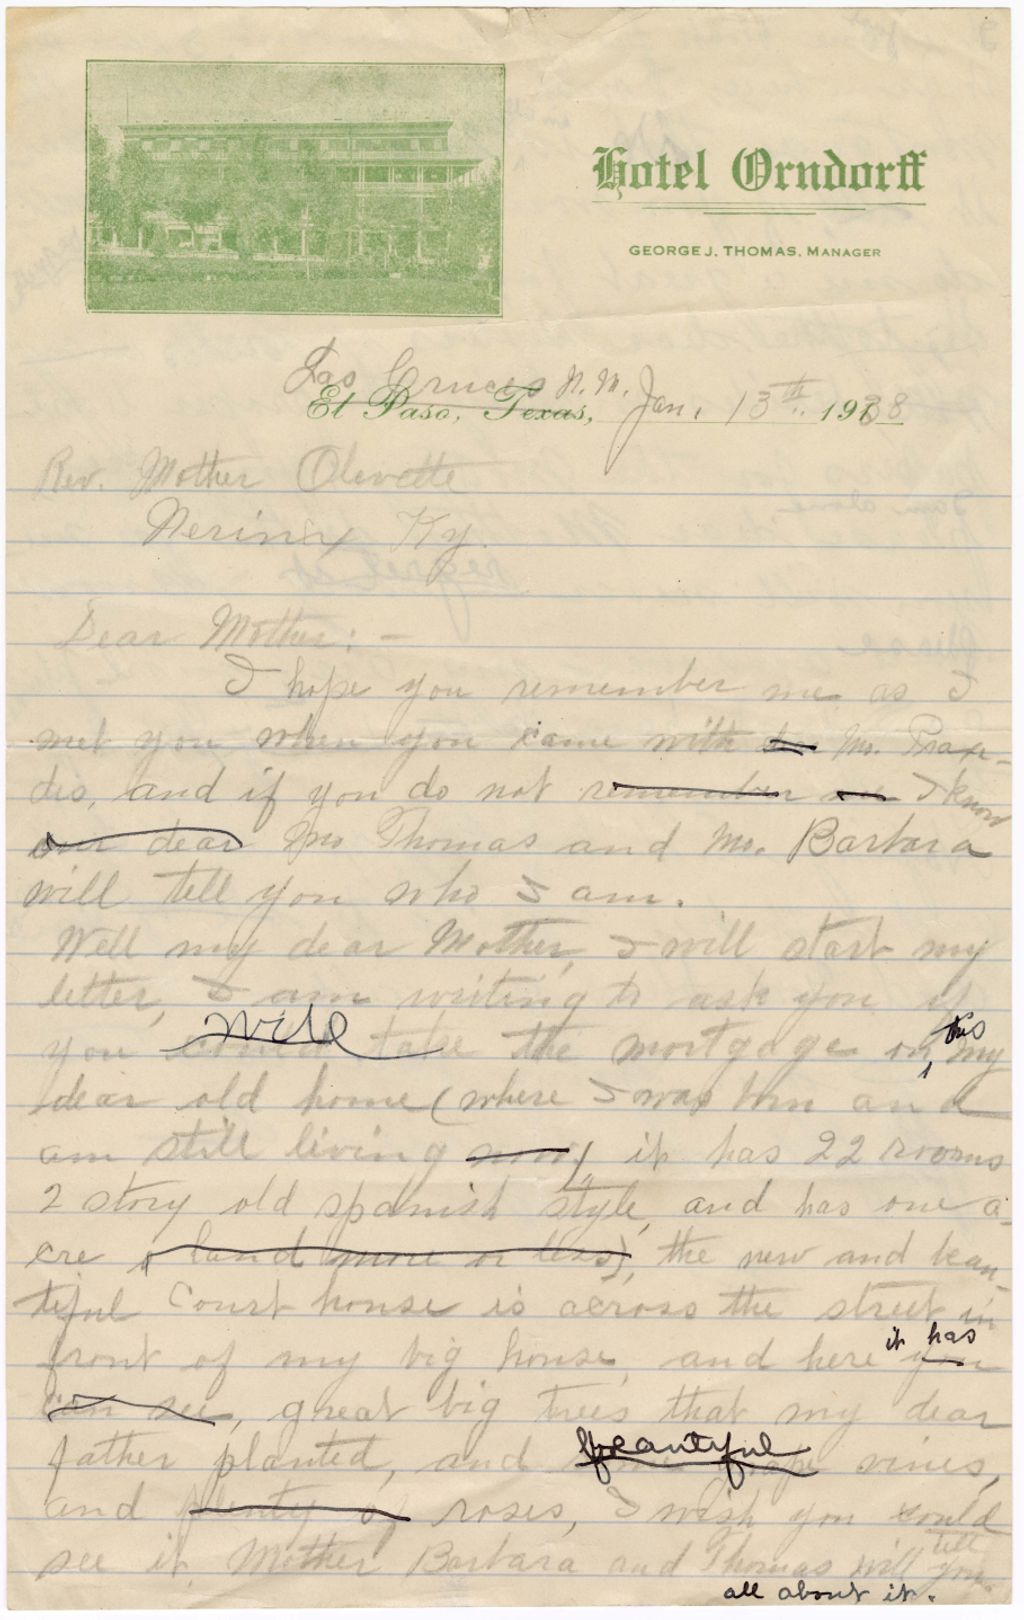 Hotel Orndorff
GEORGE J. THOMAS, MANAGER
Las Cruces N. M.
El Paso, Texas, Jan. 13th. 1938
Rev. Mother Olivette
Nerinx Ky.
Dear Mother: -
I hope you remember me as I
met you when you came with Mo. Praxe-
dis, and if you do not remember me I know
our dear Mo Thomas and Mo. Barbara
will tell you who I am.
Well my dear Mother, I will start my
letter, I am writing to ask you if
you will take the mortgage on, this my
dear old home (where I was born and
am still living now), it has 22 rooms
2 story old spanish style, and has one a-
cre o land more or less), the new and beau-
tiful Court house is across the street in
front of my big house, and here you it has
can see, great big trees that my dear
father planted, and beautiful grape vines,
and plenty of roses, I wish you could
see it, Mother Barbara and Thomas will tell you.
all about it.